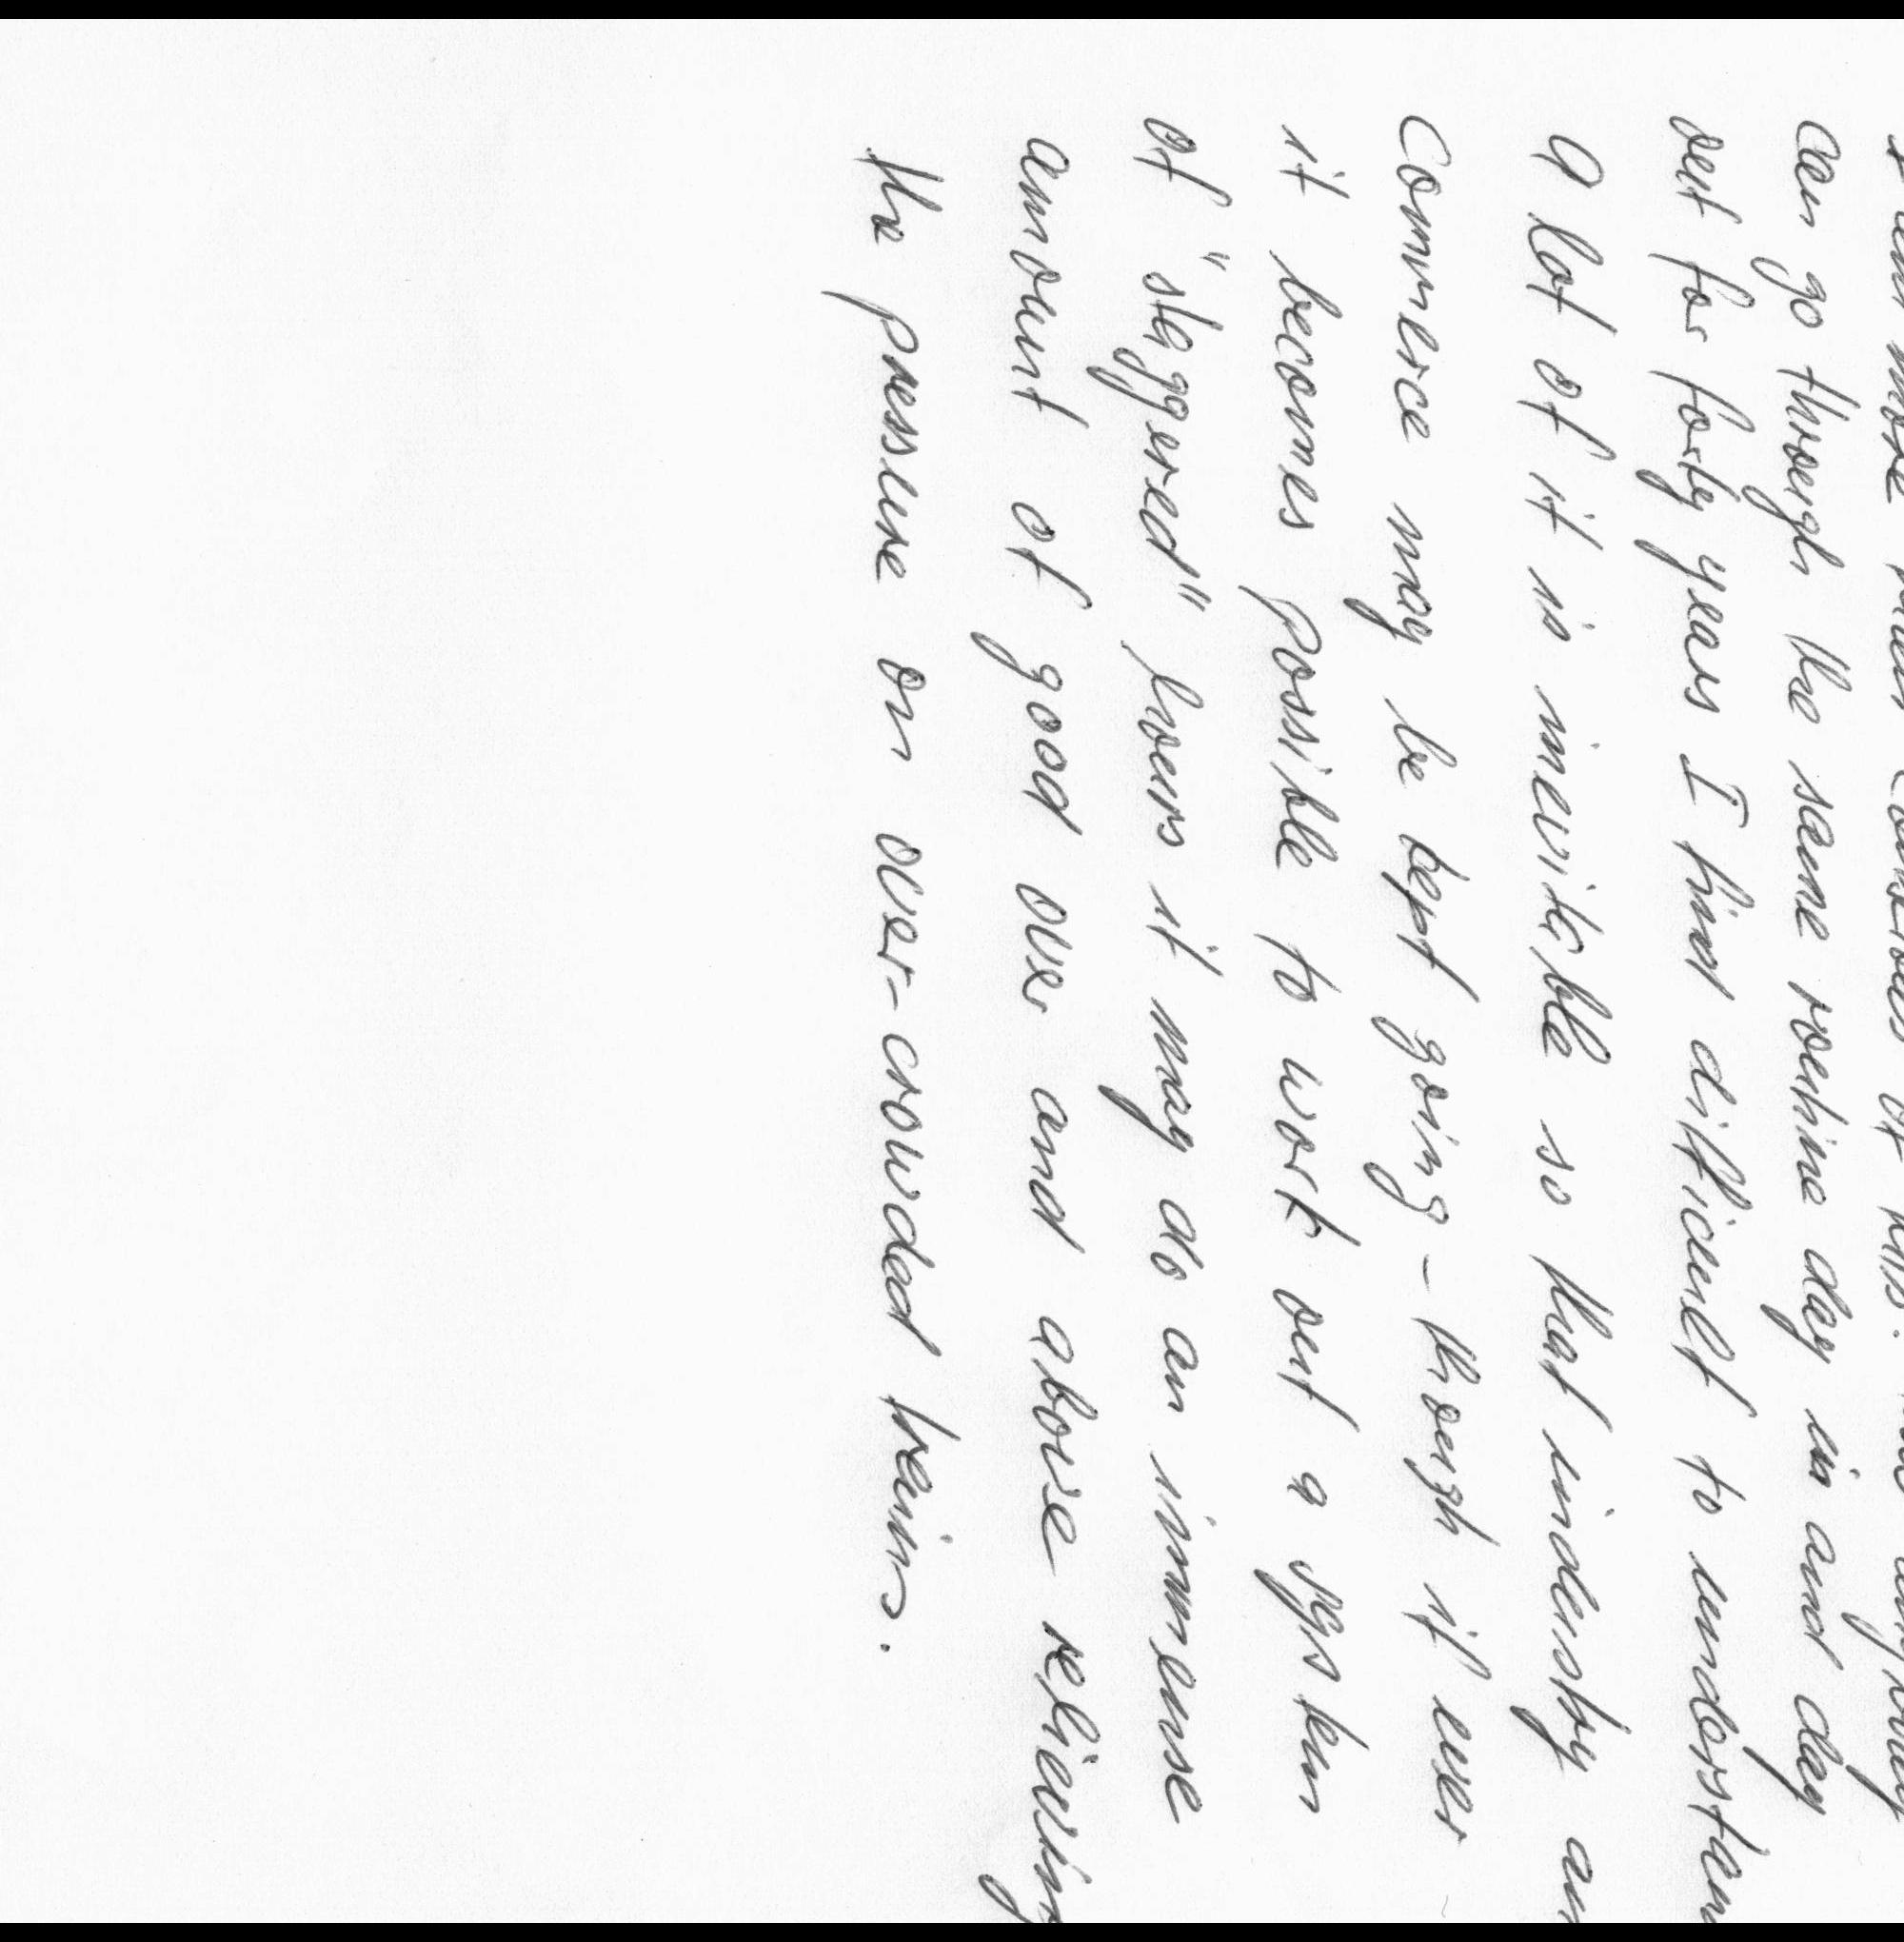 can go through the same routine day in and day
out for forty years I find difficult to understan
A lot of it is inevitable so that industry an
Commerce may be kept going - though if ever
it becomes possible to work out a system
of "staggered" hours it may do an immense
amount of good over and above relieving
the pressure on over-crowded trains.